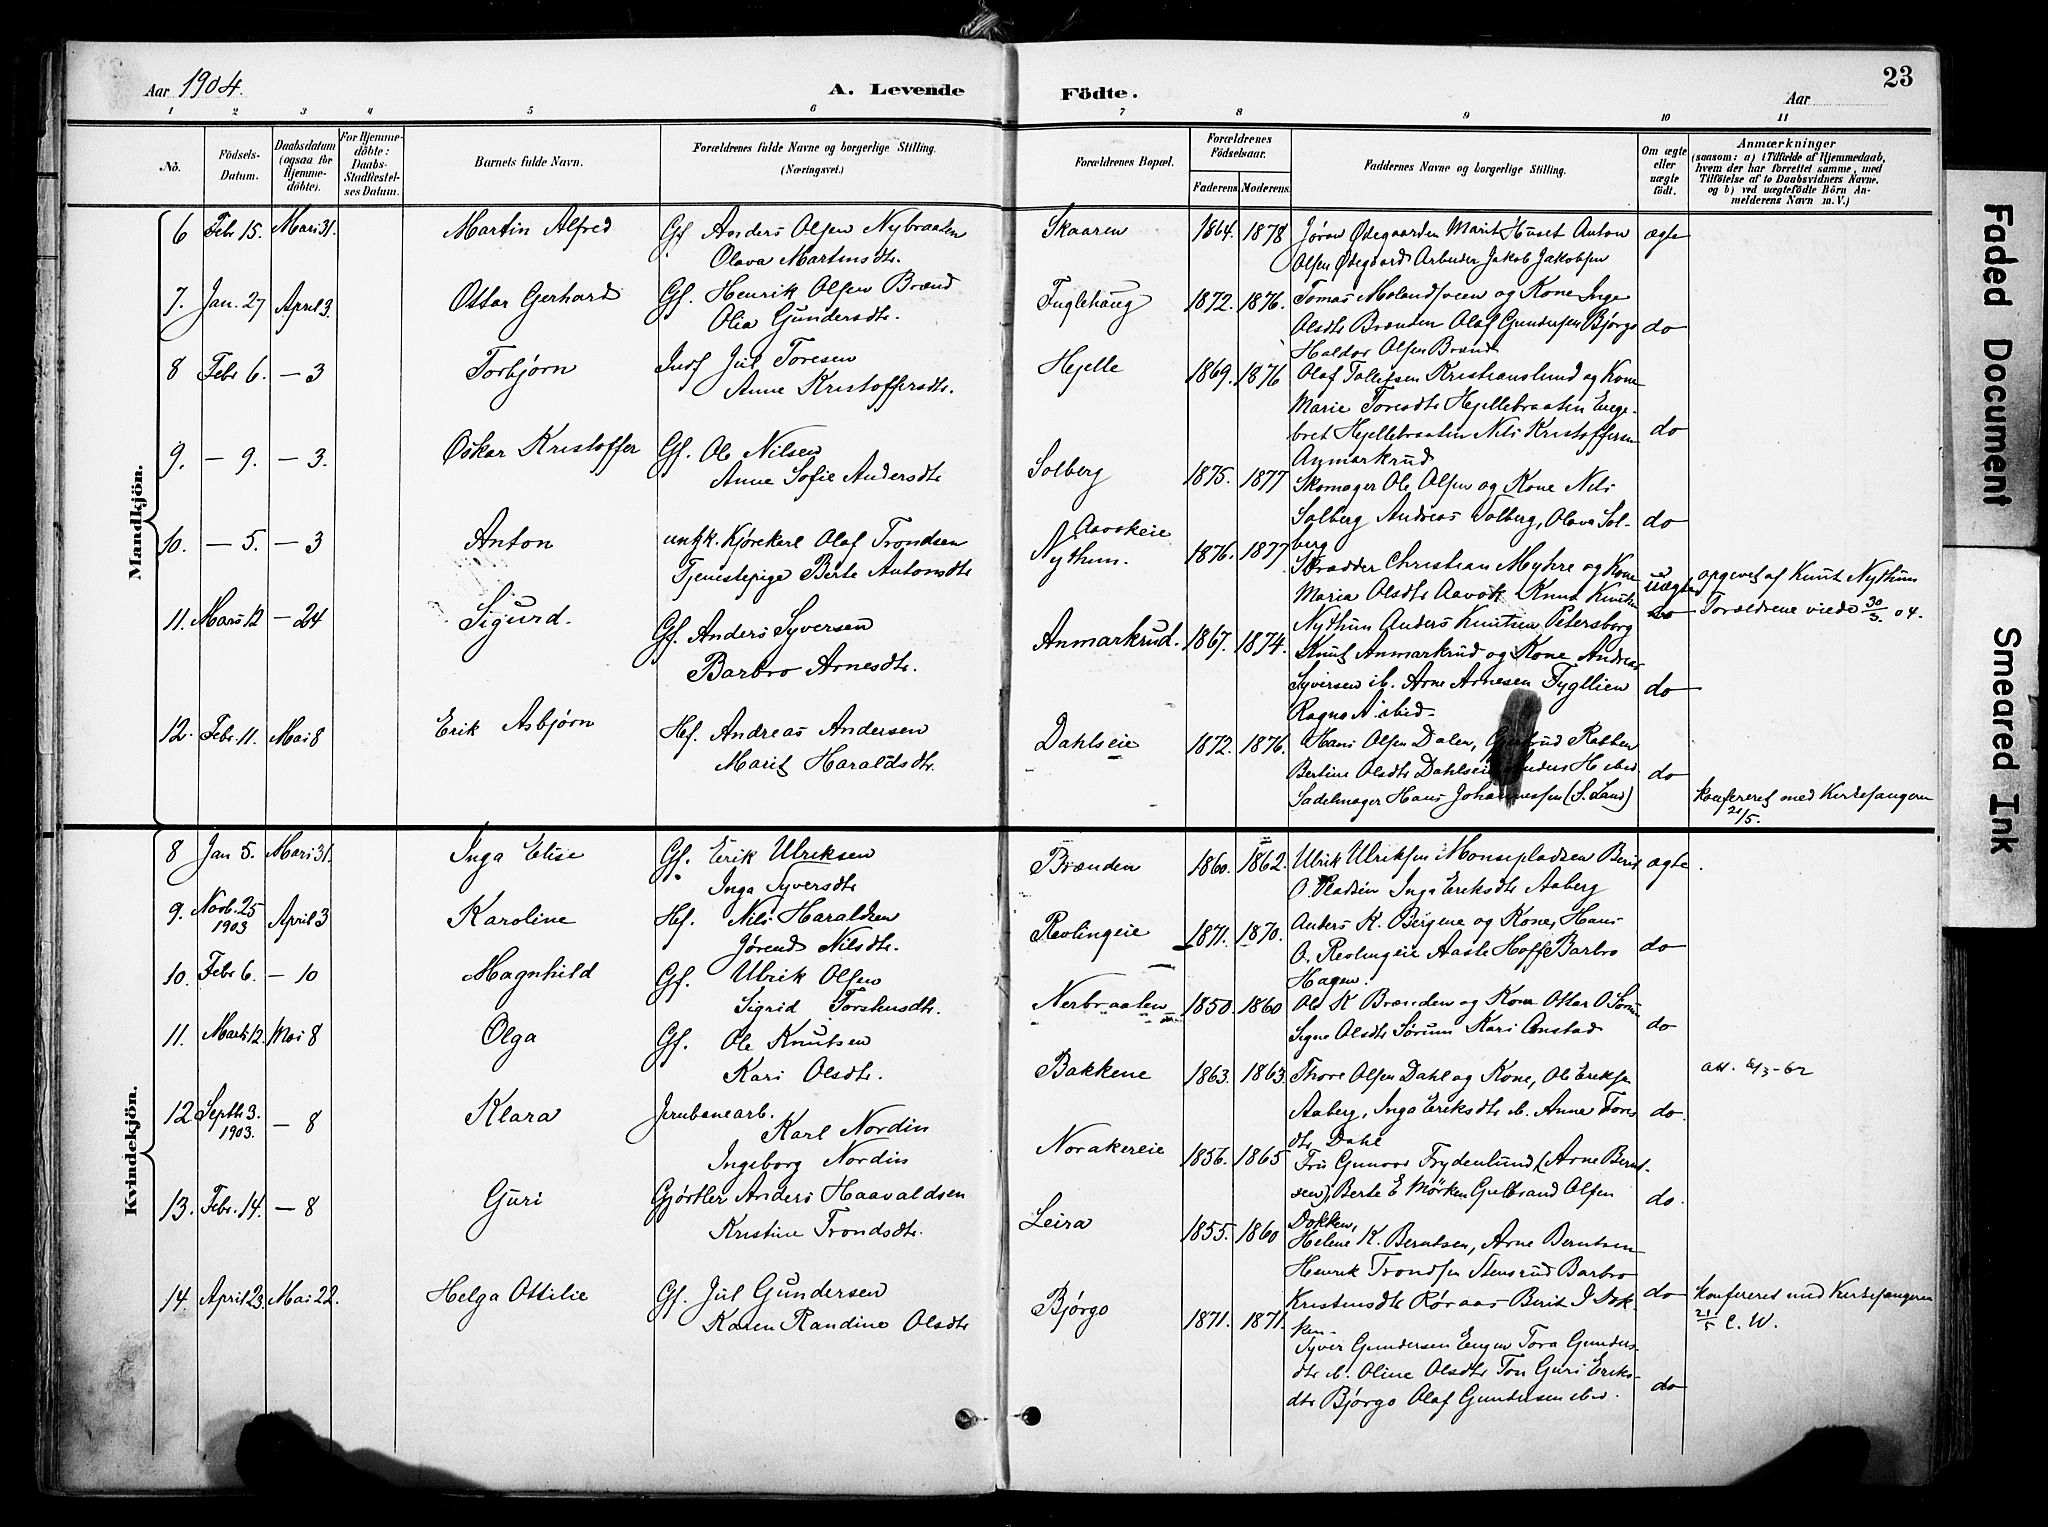 Aar 1904. A. Levende Födte. Aar 23
1 2 3 4 5 6 7 8 9 10 11
No. Födsels-Datum. Daabsdatum (ogsaa for Hjemme-döbte). For Hjemme-döbte: Daabs-Stadfæstel-ses Datum. Barnets fulde Navn. Forældrenes fulde Navne og borgerlige Stilling. (Næringsvei.) Forældrenes Bopæl. Forældrenes Födselsaar. Faderens Moderens. Faddernes Navne og borgerlige Stilling. Om ægte eller uægte födt. Anmærkninger (saasom: a) i Tilfælde af Hjemmedaab, hvem der har forrettet samme, med Tilföielse af to Daabsvidners Navne, og b) ved uægtefödte Börn An-melderens Navn m. V.)
Mandkjön.
6 Febr 15. Mars 31. Martin Alfred Gf. Anders Olsen Nybraaten Skaaren 1864. 1878 Jøran Ødegaarden Marit Huset Anton ægte
Olava Martinsdtr. Olsen Ødegaard Arbeider Jakob Jakobsen
7. Jan. 27 April 3. Ottar Gerhard Gf. Henrik Olsen Brænd Fuglehaug 1872. 1876. Tomas Molandsveen og Kone Inge
Olia Gundersdtr. Olsdtr Brænden Olaf Gundersen Bjørgo do
Haldor Olsen Brænd
8 Febr 6. — 3 Torbjørn Inds Jul Toresen Hjelle 1869. 1876 Olaf Tollefsen Kristianslund og Kone
Anne Kristoffersdtr. Marie Toresdtr Hjellebraaten Enge-
bret Hjellebraaten Nils Kristoffersen do
Anmarkrud
9. — 9. — 3. Oskar Kristoffer Gf. Ole Nilsen Solberg 1875. 1877 Skomager Ole Olsen og Kone Nils
Anne Sofie Andersdtr Solberg Andreas Solberg, Olava Sol- do
berg
10. — 5. — 3 Anton ungk. Kjørekarl Olaf Trondsen Aavokeie
Tjenestepige Berte Antonsdtr Nythun. 1876. 1877 Skrædder Christian Myhre og Kone
Maria Olsdtr Aavok Knut Knutsen uægte opgivet af Knut Nythun
Nythun Anders Knutsen Petersborg do Forældrene viede 30/3. 04.
11. Mars 12 — 24 Sigurd. Gf. Anders Syversen Anmarkrud. 1867. 1874. Knut Anmarkrud og Kone Andreas
Barbro Arnesdtr. Syversen ib. Arne Arnesen Fygllien do
Ragna A. ibid.
12. Febr. 11. Mai 8 Erik Asbjørn Hf. Andreas Andersen Dahlseie 1872. 1876. Hans Olsen Dalen, Gertrud Rabben
Marit Haraldsdtr. Bertine Olsdtr Dahlseie Anders H ibid. do
Sadelmager Hans Johannessen (S. Land) konfereret med Kirkesangeren
21/5.
Kvindekjön.
8 Jan 5. Mars 31. Inga Elise Gf. Erik Ulriksen Brænden 1860. 1862. Ulrik Ulriksen Monsepladsen Berit ægte
Inga Syversdtr O. Pladsen Inga Eriksdtr Aaberg
9. Novb. 25 1903 April 3 Karoline Hf. Nils Haraldsen Revlingeie 1871. 1870. Anders K. Bergene og Kone, Hans
Jørend Nilsdtr. O. Revlingeie Aaste Hoff Barbro do
Hagen.
10. Febr 6. — 10 Magnhild Gf. Ulrik Olsen Nerbraaten 1850. 1860 Ole K Brænden og Kone Ottar O Sørum
Sigrid Torstensdtr. Signe Olsdtr Sørum Kari Onstad do
11. Marts 12. Mai 8 Olga Gf. Ole Knutsen Bakkene 1863. 1863. Thore Olsen Dahl og Kone, Ole Eriksen
Kari Olsdtr. Aaberg, Inga Eriksdtr ib. Anne Tores do.
dtr Dahl
12 Septb 3. 1903. — 8 Klara Jernbanearb. Karl Nordin Norakereie 1856. 1865 Fru Gunvor Frydenlund (Arne Bernt-
Ingeborg Nordin sen), Berte E Mörken Gulbrand Olsen do.
Dokken,
13. Febr. 14. — 8 Guri Gjørtler Anders Haavaldsen Leira 1855. 1860 Helene K. Berntsen, Arne Berntsen
Kristine Trondsdtr. Henrik Trondsen Stensrud Barbro
Kristensdtr Røraas Berit I Dok- do
ken.
14. April 23. Mai 22. Helga Ottilie Gf. Jul Gundersen Bjørgo 1871. 1871. Konfereret med Kirkesangeren
Karen Randine Olsdtr 21/5 C. W.
Syver Gundersen Engen Tora Gunders-
dtr ib. Oline Olsdtr Ton Guri Eriks-
dtr Bjørgo Olaf Gundersen ibid. do
Faded Document
Smeared Ink